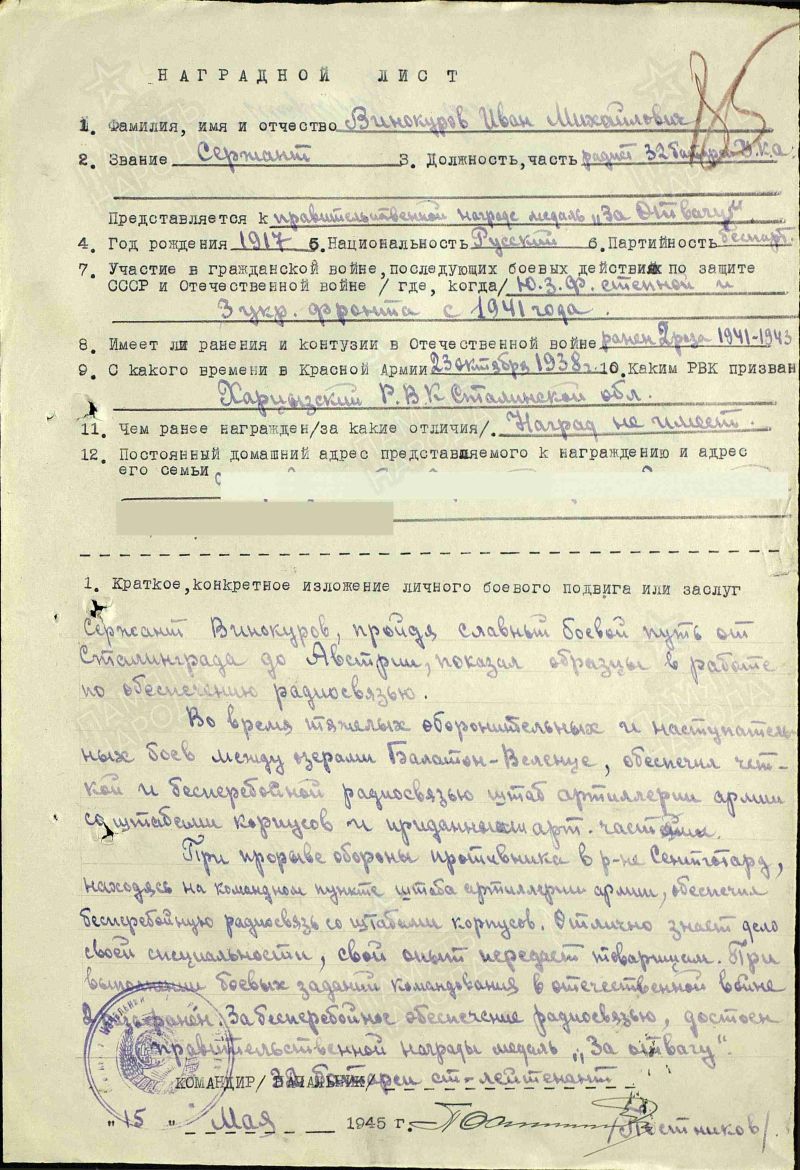 85
НАГРАДНОЙ ЛИСТ
1. Фамилия, имя и отчество Винокуров Иван Михайлович
2. Звание Сержант 3. Должность, часть радист 32 батареи У.К.А.
Представляется к правительственной награде медаль „За Отвагу".
4. Год рождения 1917 5. Национальность Русский 6. Партийность беспарт.
7. Участие в гражданской войне, последующих боевых действиях по защите
СССР и Отечественной войне / где, когда/ Ю.З.Ф. степной и
3 укр. фронта с 1941 года.
8. Имеет ли ранения и контузии в Отечественной войне ранен 2 раза 1941-1943
9. С какого времени в Красной Армии 23 октября 1938 г. 10. Каким РВК призван
Харцызский Р.В.К Сталинской обл.
11. Чем ранее награжден/за какие отличия/. Наград не имеет.
12. Постоянный домашний адрес представляемого к награждению и адрес
его семьи
1. Краткое, конкретное изложение личного боевого подвига или заслуг
Сержант Винокуров, пройдя славный боевой путь от
Сталинграда до Австрии, показал образцы в работе
по обеспечению радиосвязью.
Во время тяжелых оборонительных и наступатель-
ных боев между озерами Балатон-Веленце, обеспечил чет-
кой и бесперебойной радиосвязью штаб артиллерии армии
со штабами корпусов и приданными арт. частями.
При прорыве обороны противника в р-не Сентготард,
находясь на командном пункте штаба артиллерии армии, обеспечил
бесперебойную радиосвязь со штабами корпусов. Отлично знает дело
своей специальности, свой опыт передает товарищам. При
выполнении боевых заданий командования в отечественной войне
2 раза ранен. За бесперебойное обеспечение радиосвязью, достоен
правительственной награды медаль „За отвагу".
КОМАНДИР/НАЧАЛЬНИК/ 32 батареи ст-лейтенант
"15" Мая 1945 г. /Постников/